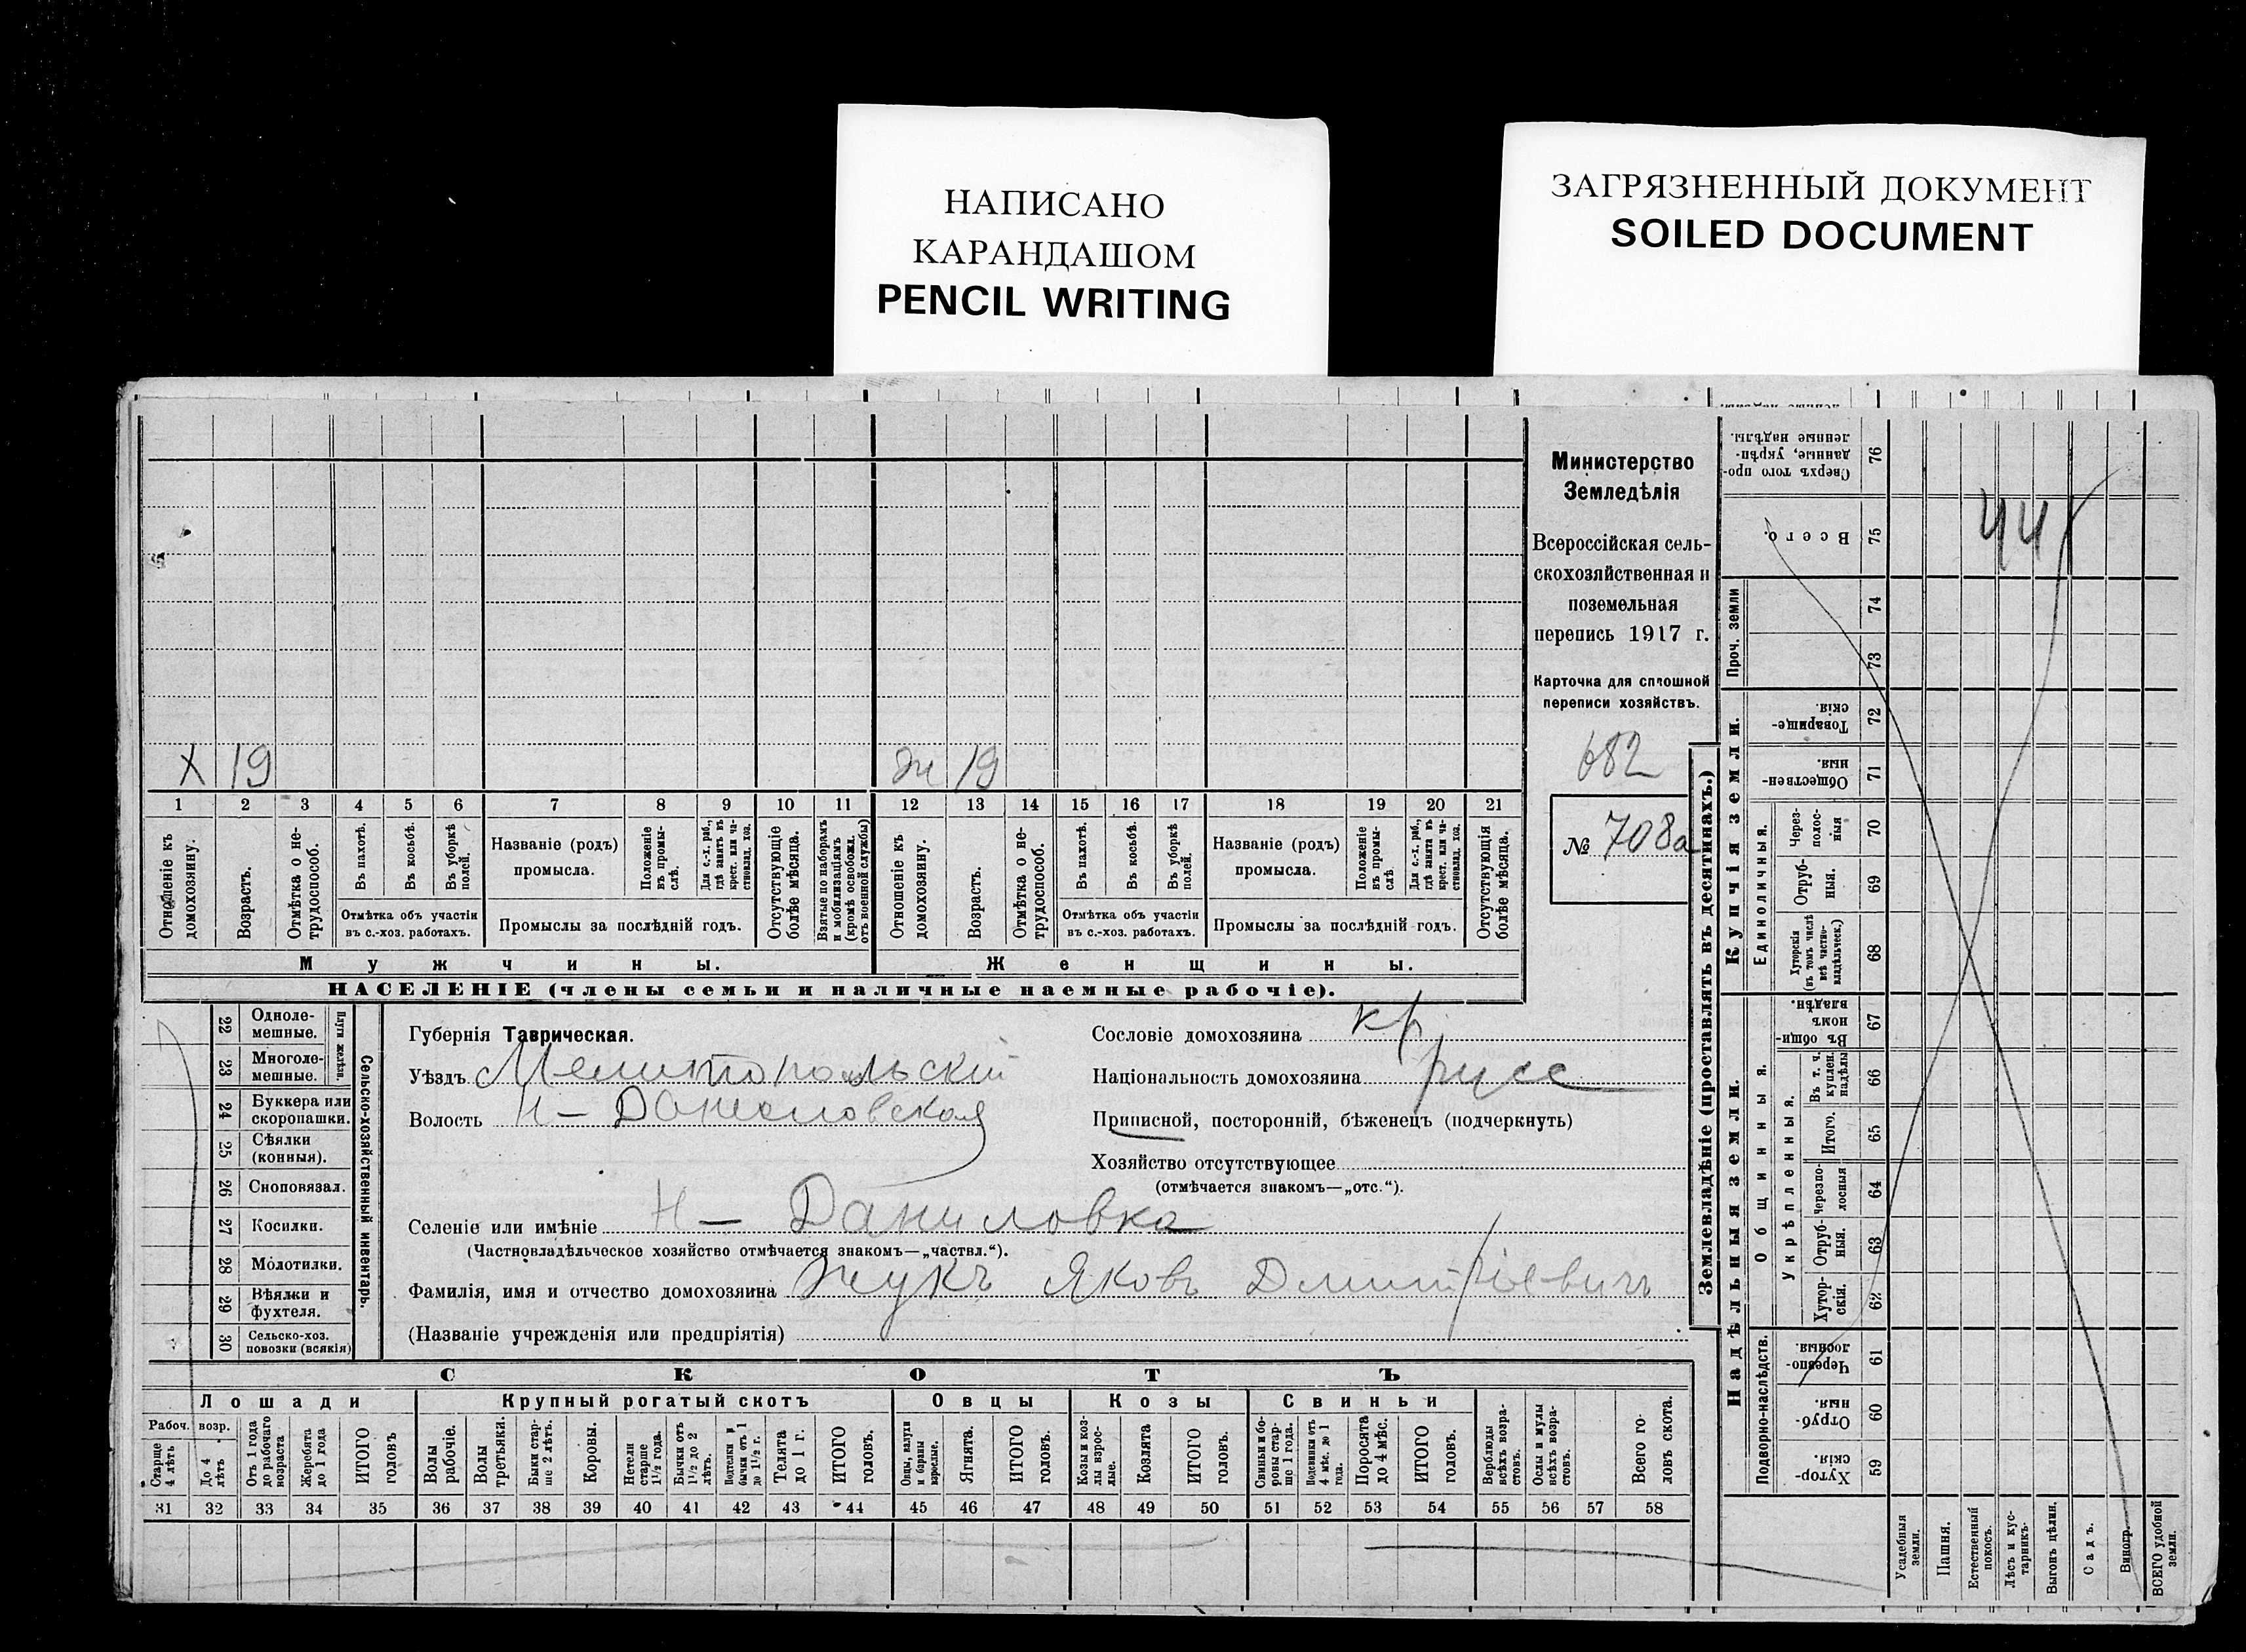 НАПИСАНО
КАРАНДАШОМ
PENCIL WRITING
ЗАГРЯЗНЕННЫЙ ДОКУМЕНТ
SOILED DOCUMENT
Министерство
Земледѣлія
Всероссійская сель-
скохозяйственная и
поземельная
перепись 1917 г.
Карточка для сплошной
переписи хозяйствъ.
682
№ 708а
Х 19
ж 19
1 2 3 4 5 6 7 8 9 10 11 12 13 14 15 16 17 18 19 20 21
Отношеніе къ домохозяину.
Возрастъ.
Отмѣтка о не-трудоспособ.
Въ пахотѣ.
Въ косьбѣ.
Въ уборкѣ полей.
Отмѣтка объ участіи
въ с.-хоз. работахъ.
Названіе (родъ)
промысла.
Положеніе въ промы-слѣ.
Для с.-х. раб., гдѣ занятъ въ крест. или ча-стновлад. хоз.
Промыслы за послѣдній годъ.
Отсутствующіе болѣе мѣсяца.
Взятые по наборамъ и мобилизаціямъ (кромѣ освобожд. отъ военной службы)
Отношеніе къ домохозяину.
Возрастъ.
Отмѣтка о не-трудоспособ.
Въ пахотѣ.
Въ косьбѣ.
Въ уборкѣ полей.
Отмѣтка объ участіи
въ с.-хоз. работахъ.
Названіе (родъ)
промысла.
Положеніе въ промы-слѣ
Для с.-х. раб., гдѣ занята въ крест. или ча-стновлад. хоз.
Промыслы за послѣдній годъ.
Отсутствующія болѣе мѣсяца.
Мужчины.
Женщины.
НАСЕЛЕНІЕ (члены семьи и наличные наемные рабочіе).
22 Одноле-мешные.
23 Многоле-мешные.
Плуги желѣзн.
24 Буккера или скоропашки.
25 Сѣялки (конныя).
26 Сноповязал.
27 Косилки.
28 Молотилки.
29 Вѣялки и фухтеля.
30 Сельско-хоз. повозки (всякія)
Сельско-хозяйственный инвентарь.
Губернія Таврическая.
Уѣздъ Мелитопольскій
Волость Н-Даниловская
Селеніе или имѣніе Н-Даниловка
(Частновладѣльческое хозяйство отмѣчается знакомъ—„частвл.“).
Фамилія, имя и отчество домохозяина Жукъ Яковъ Дмитріевичъ
(Названіе учрежденія или предпріятія)
Сословіе домохозяина кр
Національность домохозяина русс
Приписной, посторонній, бѣженецъ (подчеркнуть)
Хозяйство отсутствующее
(отмѣчается знакомъ—„отс.“).
СКОТЪ
Лошади
Крупный рогатый скотъ
Овцы
Козы
Свиньи
Рабоч. возр.
Старше 4 лѣтъ
До 4 лѣтъ
Отъ 1 года до рабочаго возраста
Жеребята до 1 года
ИТОГО головъ
Волы рабочіе.
Волы третьяки.
Быки стар-ше 2 лѣтъ.
Коровы.
Нетели старше 1½ года.
Бычки отъ 1½ до 2 лѣтъ.
Подтелки и бычки отъ 1 до 1½ г.
Телята до 1 г.
ИТОГО головъ.
Овцы, валухи и бараны взрослые.
Ягнята.
ИТОГО головъ.
Козы и коз-лы взрос-лые.
Козлята
ИТОГО головъ.
Свиньи и бо-ровы стар-ше 1 года.
Подсвинки отъ 4 мѣс. до 1 года.
Поросята до 4 мѣс.
ИТОГО головъ.
Верблюды всѣхъ возра-стовъ.
Ослы и мулы всѣхъ возра-стовъ.
Всего го-ловъ скота.
31 32 33 34 35 36 37 38 39 40 41 42 43 44 45 46 47 48 49 50 51 52 53 54 55 56 57 58
Землевладѣніе (проставлять въ десятинахъ.)
Надѣльныя земли.
Купчія земли.
Проч. земли
Подворно-наслѣдств.
Общинныя.
Укрѣпленныя.
Единоличныя.
76 Сверхъ того про-данные, укрѣп-ленные надѣлы.
75 Всего.
74
73
72 Товарище-скія.
71 Обществен-ныя
70 Через-полос-ныя
69 Отруб-ныя.
68 Хуторскія (въ томъ числѣ всѣ частно-владѣльческ.)
67 Въ общин-номъ владѣн.
66 Въ т. ч. куплен. надѣлы
65 Итого.
64 черезпо-лосныя
63 Отруб-ныя.
62 Хутор-скія.
61 Черезпо-лосныя.
60 Отруб-ныя.
59 Хутор-скія.
44
Усадебныя земли.
Пашня.
Естественный покосъ.
Лѣсъ и кус-тарникъ.
Выгонъ цѣлин.
Садъ.
Виногр.
ВСЕГО удобной земли.